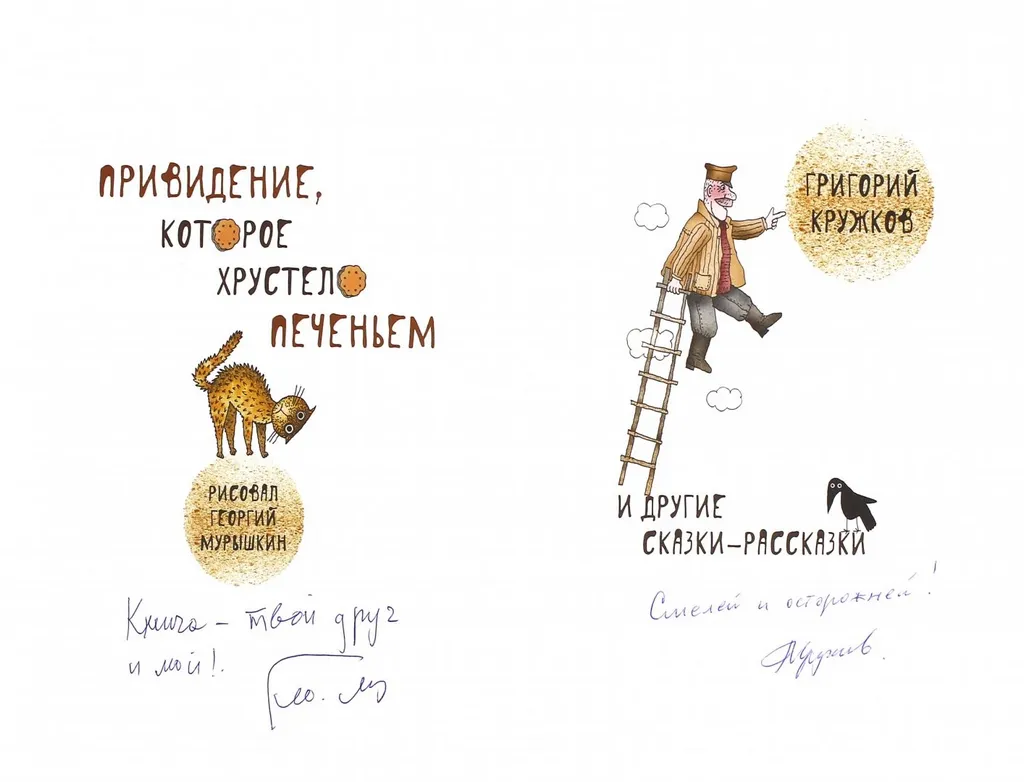 ПРИВИДЕНИЕ,
КОТОРОЕ
ХРУСТЕЛО
ПЕЧЕНЬЕМ
РИСОВАЛ
ГЕОРГИЙ
МУРЫШКИН
Книга – твой друг
и мой!
ГРИГОРИЙ
КРУЖКОВ
И ДРУГИЕ
СКАЗКИ–РАССКАЗКИ
Смелей и осторожней!